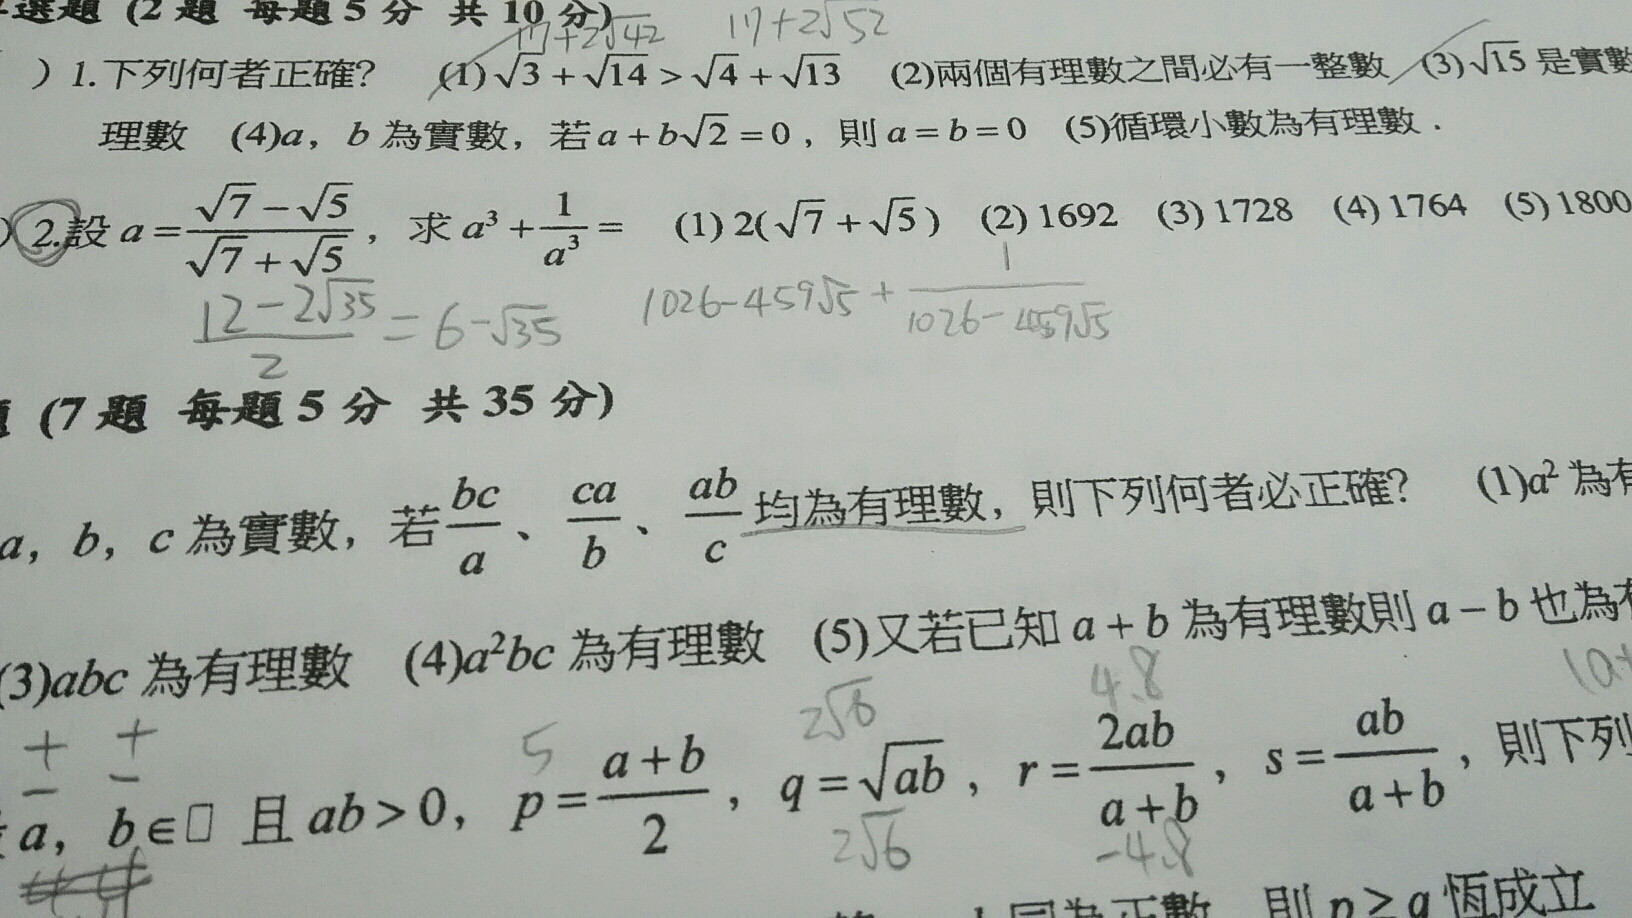 選題 (2 題 每題 5 分 共 10 分)
17+2√42 17+2√52
) 1.下列何者正確? (1)√3 + √14 > √4 + √13 (2)兩個有理數之間必有一整數 (3)√15 是實數
理數 (4)a，b 為實數，若 a + b√2 = 0，則 a = b = 0 (5)循環小數為有理數．
) 2.設 a = (√7 − √5)/(√7 + √5)，求 a³ + 1/a³ = (1) 2(√7 + √5) (2) 1692 (3) 1728 (4) 1764 (5) 1800
(12−2√35)/2 = 6−√35 1026−459√5 + 1/(1026−459√5)
題 (7 題 每題 5 分 共 35 分)
a，b，c 為實數，若 bc/a、ca/b、ab/c 均為有理數，則下列何者必正確? (1)a² 為有
(3)abc 為有理數 (4)a²bc 為有理數 (5)又若已知 a + b 為有理數則 a − b 也為有
+ + 5 2√6 4.8
− −
a，b∈□ 且 ab > 0，p = (a + b)/2，q = √ab，r = 2ab/(a + b)，s = ab/(a + b)，則下列
2√6 −4.8
同為正數 則 p ≥ q 恆成立